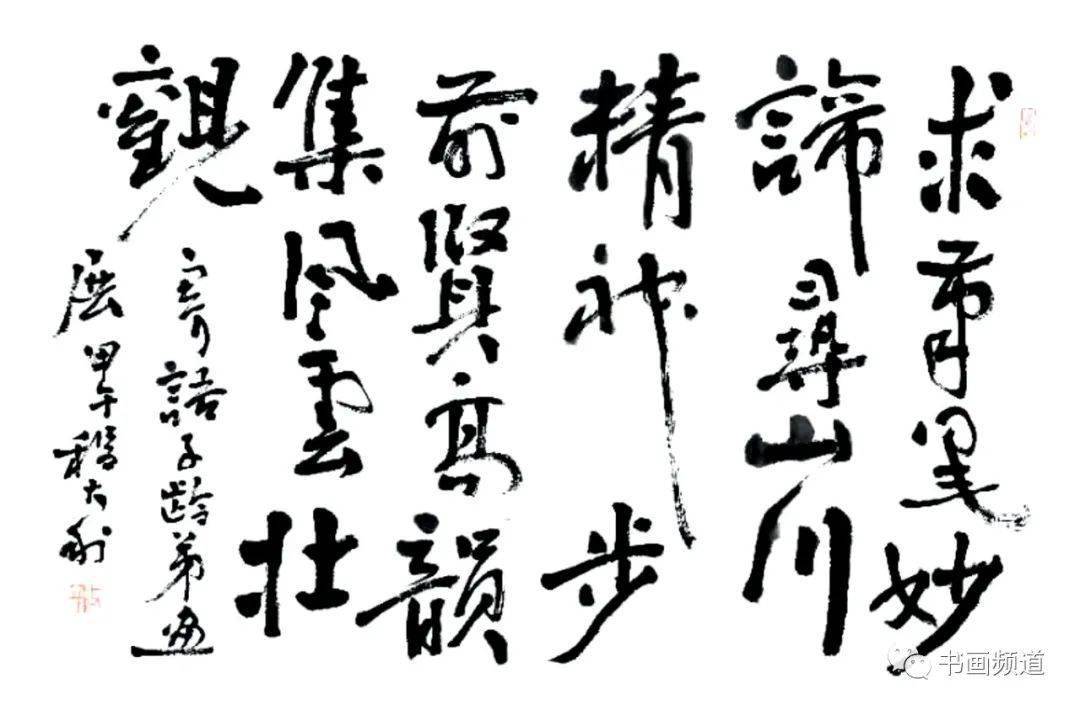 求筆墨妙
諦尋山川
精神步
前賢高韻
集風雲壯
觀
寄語子齡弟畫
展甲午程大利
书画频道